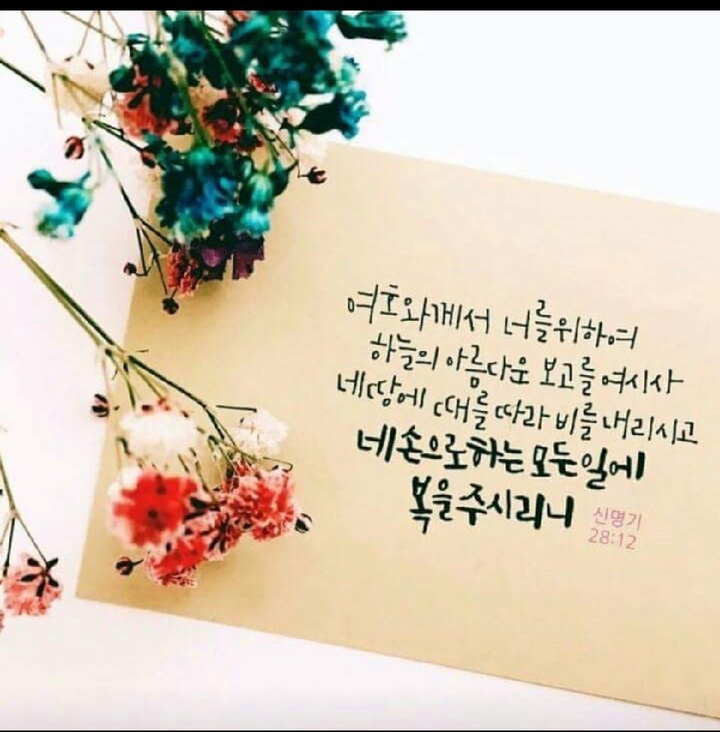 여호와께서 너를위하여
하늘의 아름다운 보고를 여시사
네땅에 때를 따라 비를 내리시고
네 손으로하는 모든일에
복을 주시리니
신명기
28:12